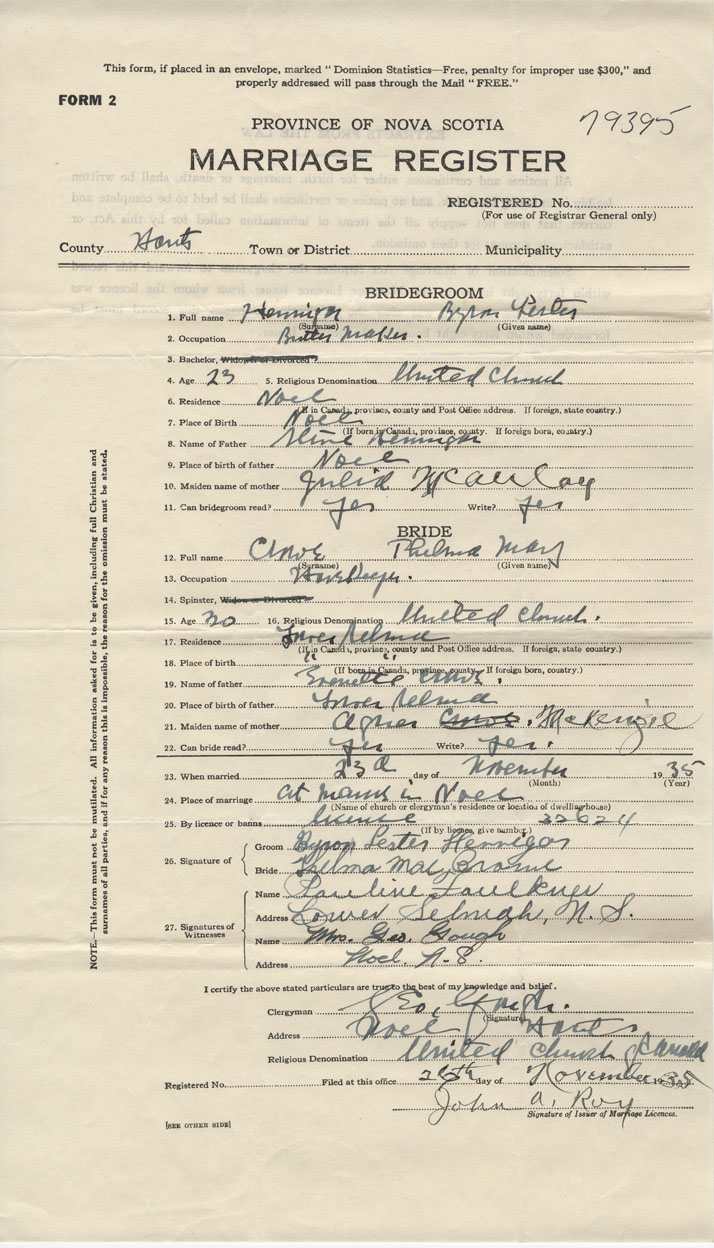 This form, if placed in an envelope, marked “ Dominion Statistics—Free, penalty for improper use $300,” and
properly addressed will pass through the Mail “FREE.”
FORM 2
PROVINCE OF NOVA SCOTIA
79395
MARRIAGE REGISTER
REGISTERED No.
(For use of Registrar General only)
County Hants Town or District Municipality
BRIDEGROOM
1. Full name Hennigar Byron Lester
(Surname) (Given name)
2. Occupation Butter Maker.
3. Bachelor, Widower or Divorced?
4. Age 23 5. Religious Denomination United Church
6. Residence Noel
(If in Canada, province, county and Post Office address. If foreign, state country.)
7. Place of Birth Noel
(If born in Canada, province, county. If foreign born, country.)
8. Name of Father Hennigar
9. Place of birth of father Noel
10. Maiden name of mother Julia McAulay
11. Can bridegroom read? Yes Write? Yes
BRIDE
12. Full name Thelma May
(Surname) (Given name)
13. Occupation Housekeeper.
14. Spinster, Widow or Divorced?
15. Age 20 16. Religious Denomination United Church.
17. Residence Lower Selma
(If in Canada, province, county and Post Office address. If foreign, state country.)
18. Place of birth " "
(If born in Canada, province, county. If foreign born, country.)
19. Name of father Everette
20. Place of birth of father Lower Selma
21. Maiden name of mother Agnes McKenzie
22. Can bride read? Yes Write? Yes.
23. When married 23d day of November 1935
(Month) (Year)
24. Place of marriage at Manse in Noel
(Name of church or clergyman's residence or location of dwellinghouse)
25. By licence or banns licence 32624
(If by licence, give number.)
26. Signature of
Groom Byron Lester Hennigar
Bride Thelma May
27. Signatures of Witnesses
Name Pauline Faulkner
Address Lower Selmah, N. S.
Name Mrs. Geo. Gough
Address Noel. N.S.
I certify the above stated particulars are true to the best of my knowledge and belief.
Clergyman Geo. Gough.
(Signature)
Address Noel Hants
Religious Denomination United Church of Canada
Registered No. Filed at this office day of November 1935
John A. Roy
Signature of Issuer of Marriage Licences.
[SEE OTHER SIDE]
NOTE.—This form must not be mutilated. All information asked for is to be given, including full Christian and
surnames of all parties, and if for any reason this is impossible, the reason for the omission must be stated.